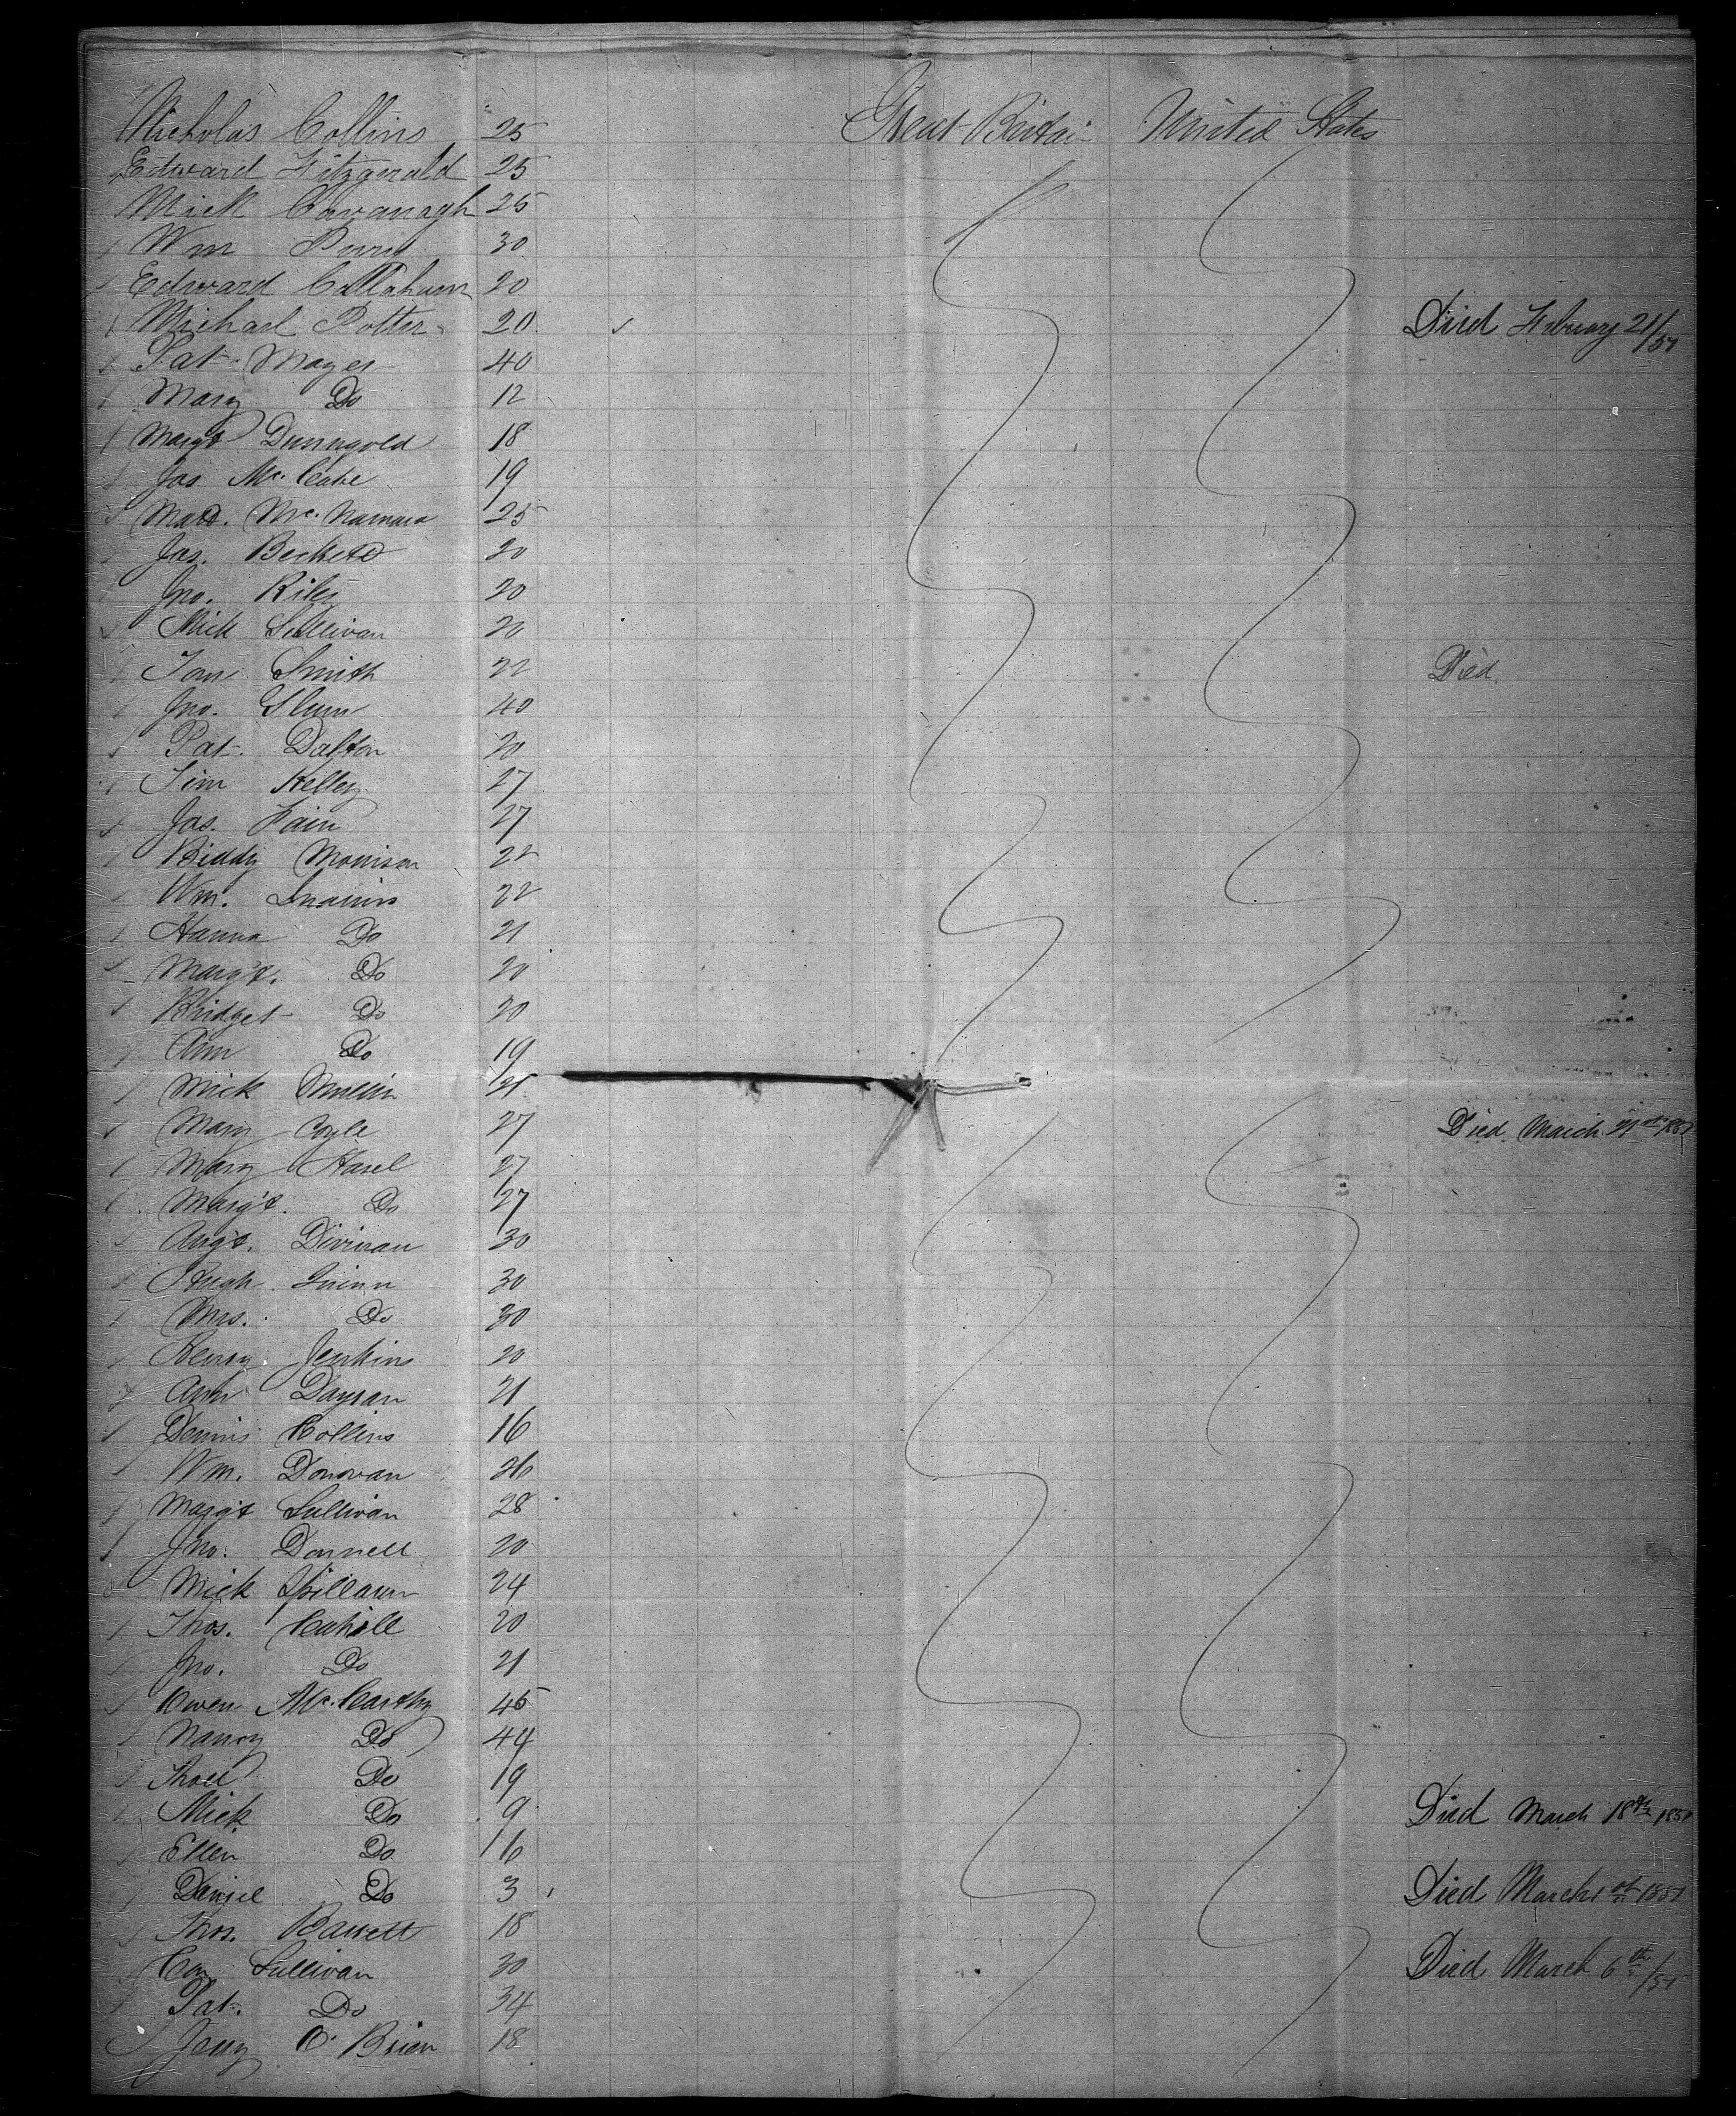 Nicholas Collins 25 Great Britain United States
Edward Fitzgerald 25
Mick Cavanagh 25
Wm 30
Edward Callahan 20
Michael Potter 20 Died February 21/51
Pat Mayer 40
Mary Do 12
Margt Dunngold 18
Jas Mc.Cabe 19
Matt. Mc.Namara 25
Jas. Beckett 20
Jno. Riley 20
Mick Sullivan 20
Tom Smith 22 Died
Jno. 40
Pat. Dalton 20
Tim Kelley 27
Jas. Fain 27
Biddy Morrison 22
Wm. 22
Hanna Do 21
Marg't. Do 20
Bridget Do 20
Ann Do 19
Mick Mullin 21
Mary Coyle 27 Died March 21st 1851
Mary Hasel 27
Marg't. Do 27
Aug't. Divinan 30
Hugh Quinn 30
Mrs. Do 30
Henry Jenkins 20
Ann 21
Dennis Collins 16
Wm. Donovan 26
Marg't Sullivan 28
Jno. Donnell 20
Mick Spillann 24
Thos. Cahill 20
Jno. Do 21
Owen Mc.Carthy 45
Nancy Do 44
Do 19
Mick Do 9 Died March 18th 1851
Ellen Do 16
Daniel Do 3 Died March 1st 1851
Thos. Barrett 18
Con Sullivan 30 Died March 6th/51
Pat. Do 34
Jerry O'Brien 18